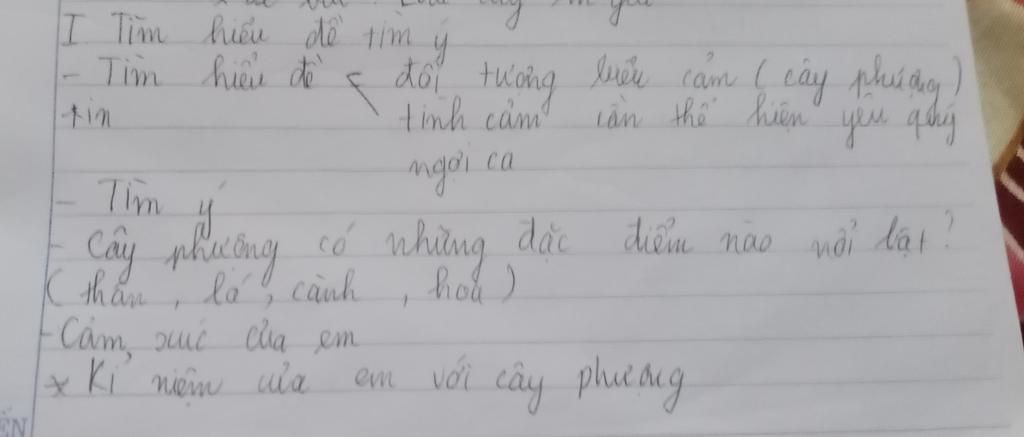 I Tìm hiểu đề tìm ý
- Tìm hiểu đề < đối tượng biểu cảm (cây phượng)
+in tình cảm cần thể hiện yêu quý
ngợi ca
- Tìm ý
- Cây phượng có những đặc điểm nào nổi bật?
(thân, lá, cành, hoa)
- Cảm xúc của em
* Kỉ niệm của em với cây phượng
ẾN